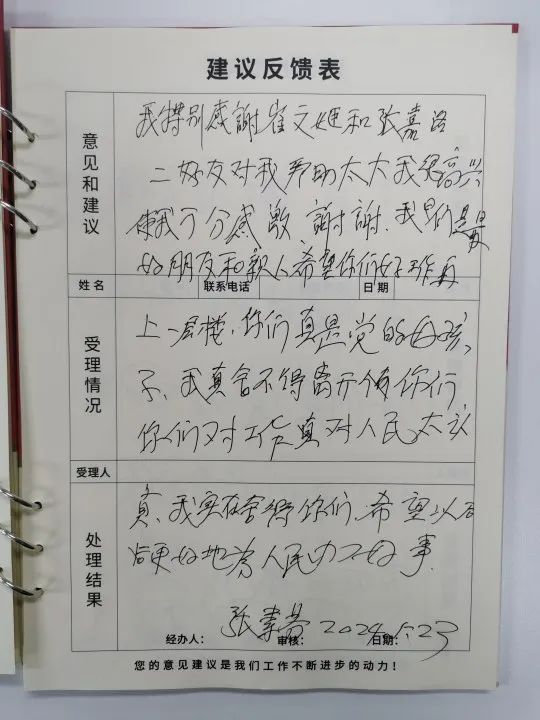 建议反馈表
意见和建议
我特别感謝崔文姬和张嘉洛
二好友对我帮助太大我很高兴
使我十分感激、謝謝、我们是最
好朋友和親人希望你们好工作再
姓名 联系电话 日期
受理情况
上一层楼、你们真是党的好孩
子、我真舍不得离开你们
你们对工作真对人民太认
受理人
处理结果
真、我实在舍得你们、希望以后
更好地为人民办好事.
张素 2024.1.23
经办人： 审核： 日期：
您的意见建议是我们工作不断进步的动力！